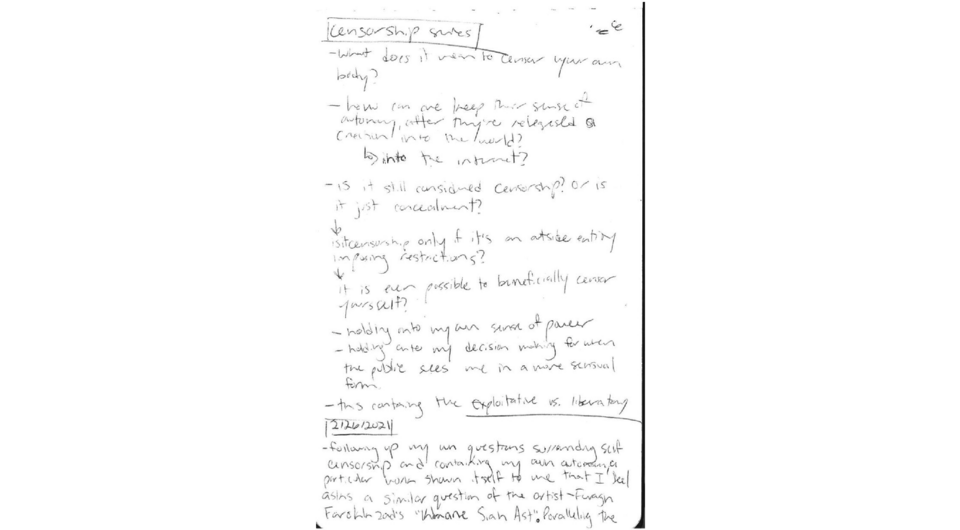 censorship series
- what does it mean to censor your own
body?
- how can one keep their sense of
autonomy, after they've released a
creation into the world?
↳ into the internet?
- is it still considered censorship? or is
it just concealment?
↓
is it censorship only if it's an outside entity
imposing restrictions?
↓
it is even possible to beneficially censor
yourself?
- holding onto my own sense of power
- holding onto my decision making for when
the public sees me in a more sensual
form.
- this containing the exploitative vs. liberating
2/26/2021
- following up my own questions surrounding self
censorship and containing my own autonomy, a
particular work shown itself to me that I feel
asks a similar question of the artist - Forugh
Farokhzad's "Khaneh Siah Ast". Paralleling the